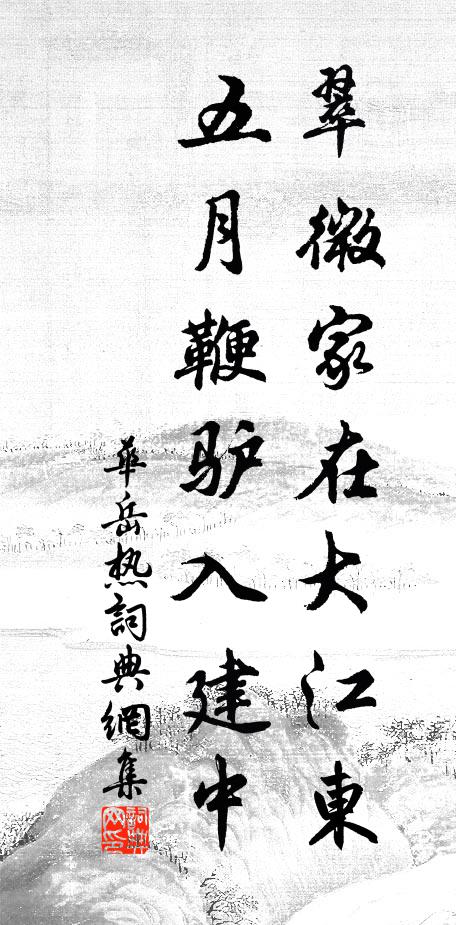 翠微家在大江東
五月鞭驴入建中
華岳热詞典網集
詞典网印